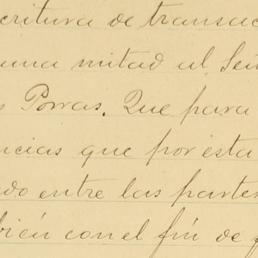 critura de transac
una mitad al Señ
s Porras. Que para
ncias que por esta
do entre las parte
bién con el fin de